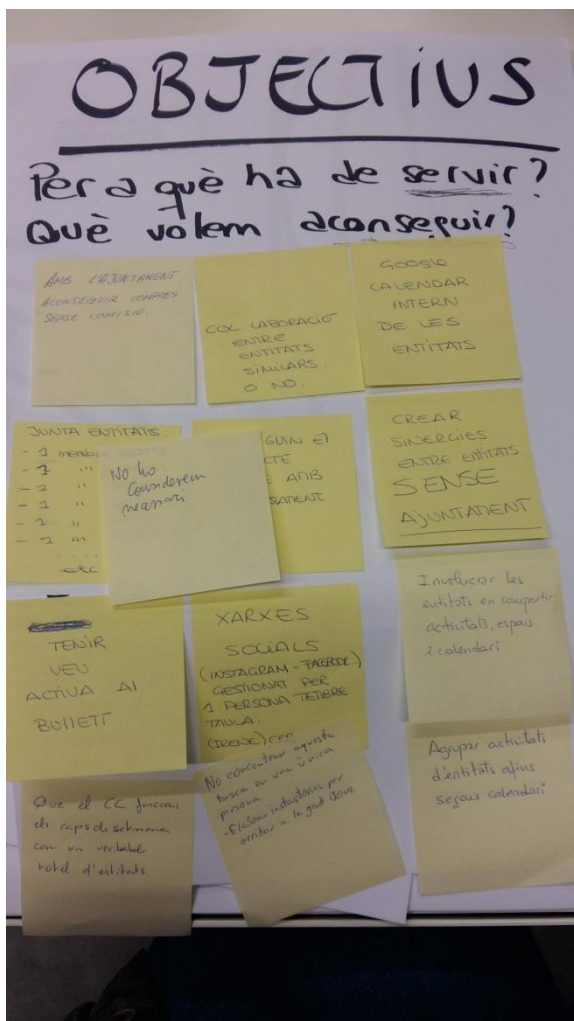 OBJECTIUS
Per a què ha de servir?
Què volem aconseguir?
AMB L'AJUNTAMENT
ACONSEGUIR COMPRES
SENSE COMISIÓ.
COL·LABORACIÓ
ENTRE
ENTITATS
SIMILARS.
O NO.
GOOGLE
CALENDAR
INTERN
DE LES
ENTITATS
JUNTA ENTITATS:
- 1 membre
- 1 "
- 1 "
- 1 "
- 1 "
- 1 m
....
etc
No ho
Considerem
necessari
GUIN EL
CTE
AMB
TAMENT
CREAR
SINERGIES
ENTRE ENTITATS
SENSE
AJUNTAMENT
TENIR
VEU
ACTIVA AL
BULLETÍ
XARXES
SOCIALS
(INSTAGRAM - FACEBOOK.)
GESTIONAT PER
1 PERSONA
TAULA.
(IRENE)
Involucrar les
entitats en compartir
activitats, espais
i calendari
Que el CC funcioni
els caps de setmana
com un veritable
hotel d'entitats.
No concentrar aquesta
tasca en una única
persona
- Elaborar instastories per
arribar a la gent jove
Agrupar activitats
d'entitats afins
segons calendari